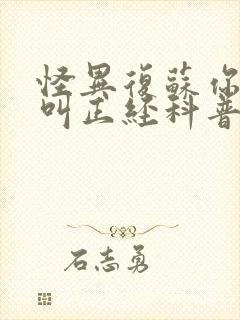 怪異復蘇你
叫正經科普
石志勇